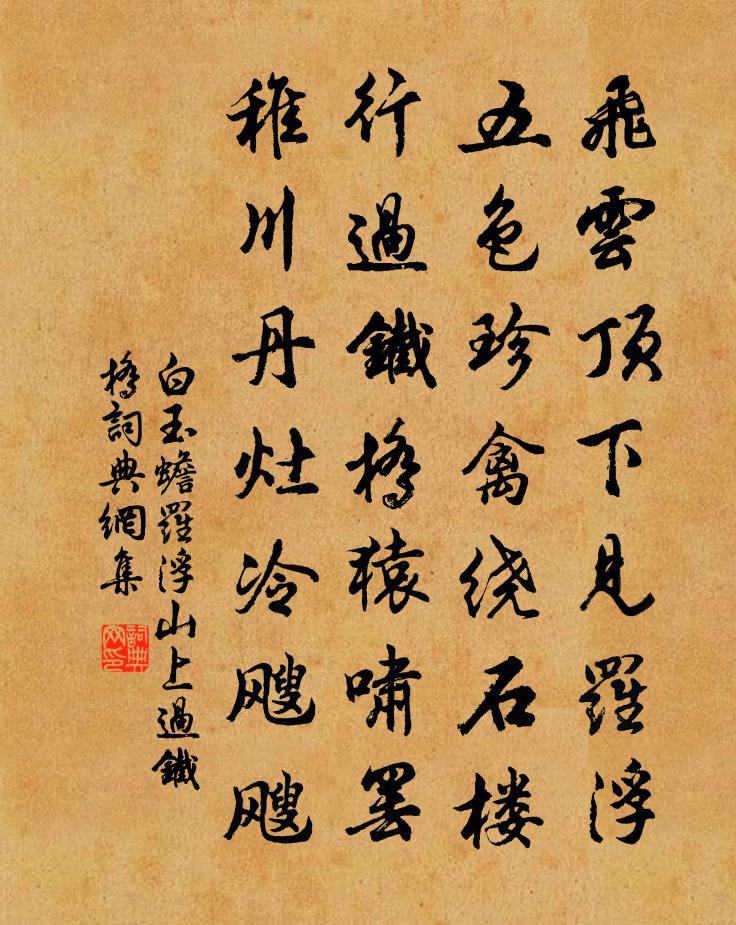 飛雲頂下見羅浮
五色珍禽绕石楼
行過鐵橋猿嘯罢
稚川丹灶冷飕飕
白玉蟾羅浮山上過鐵
橋詞典網集
詞典
网印